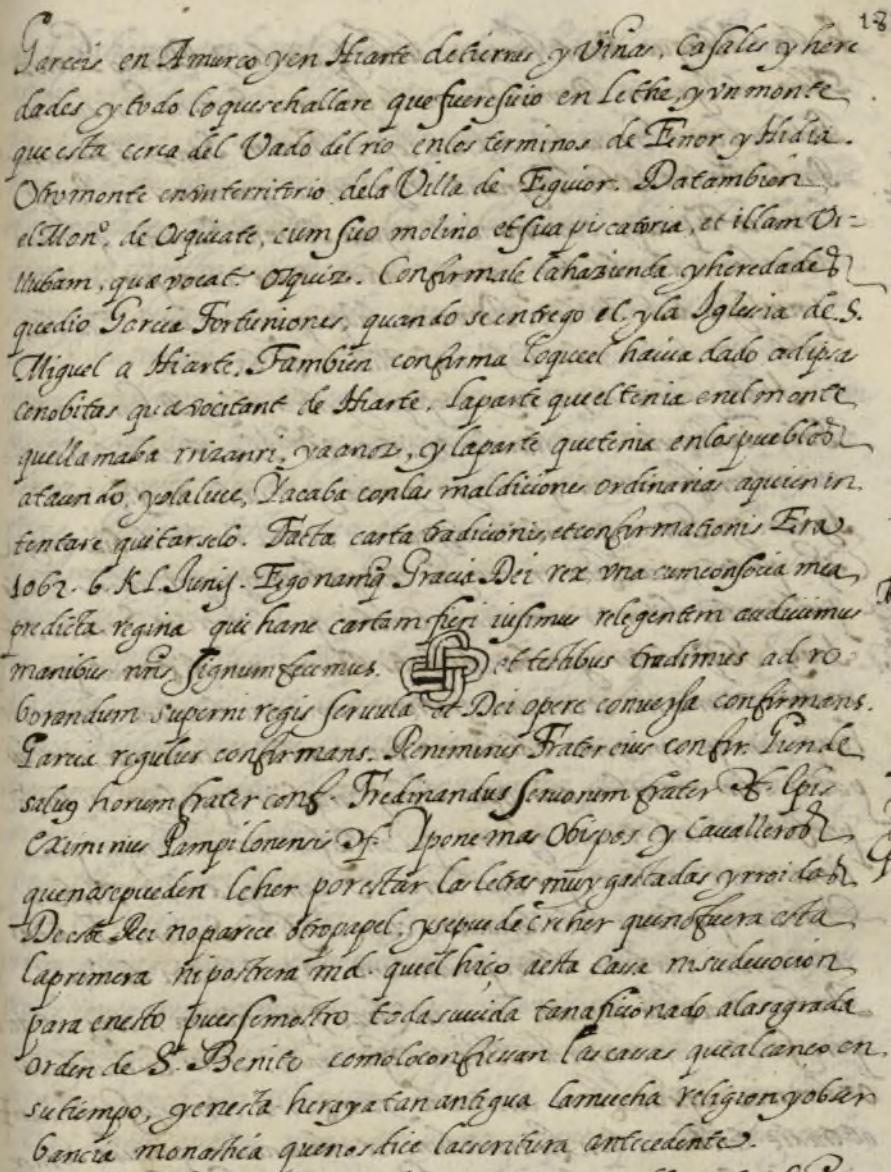 18
Garceis en Amurco y en Hiarte de tierras, y Viñas, Casales y here
dades y todo lo que se hallare que fuere suio en Lethe, y vn monte
que esta cerca del Vado del rio en los terminos de Enor y Hidia.
Otro monte en vn territorio de la Villa de Eguior. Da tambien
el Mon.º de Osquiate, cum suo molino et sua piscatoria, et illam Vi=
llubam, quæ vocat. Osquiz. Confirmale la hazienda y heredades
que dio Garcia Fortuniones, quando se entrego el y la Iglesia de S.
Miguel a Hiarte. Tambien confirma lo que el hauia dado ad ipsa
cenobitas qua vocitant de Hiarte. La parte que el tenia en el monte
que llamaba rrizanri, ya anoz, y la parte que tenia en los pueblos
ataundo, y olaluce, Y acaba con las maldiciones ordinarias a quien in
tentare quitarselo. Facta carta tradicionis, et confirmationis Era
1062. 6. KL. Junij. Ego namq Gracia Dei rex vna cum consocia mea
predicta regina qui hanc cartam fieri iusimus relegentem audiuimus
manibus nris signum fecimus. et testibus tradimus ad ro
borandum superni regis seruula et Dei opere conuersa confirmans.
Garcia regulus confirmans. Renimirus Frater eius confir. Gunde
salug horum frater conf. Fredinandus seruorum frater cf. Epis
Eximinius Pampilonensis cf. Y pone mas Obispos y Caualleros
que no se pueden leher por estar las letras muy gastadas y rroidas
De este Rei no parece otro papel, y se puede creher que no fuera esta
la primera ni postrera md. que el hiço a esta Casa ni su deuocion
para en esto pues se mostro toda su uida tan aficionado a la sagrada
orden de S.t Benito como lo confiessan las casas que alcanço en
su tiempo, y en esta hera ya tan antigua la mucha religion y obser
bancia monastica que nos dice la escritura antecedente.